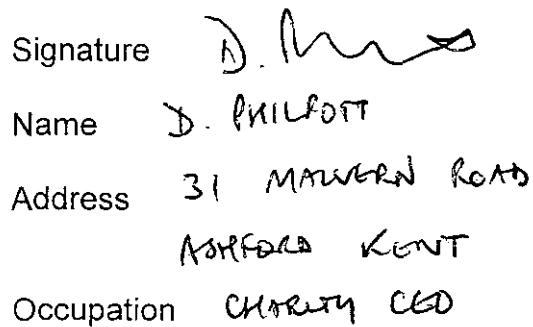 Signature D.
Name D. PHILPOTT
Address 31 MALVERN ROAD
ASHFORD KENT
Occupation CHARITY CEO